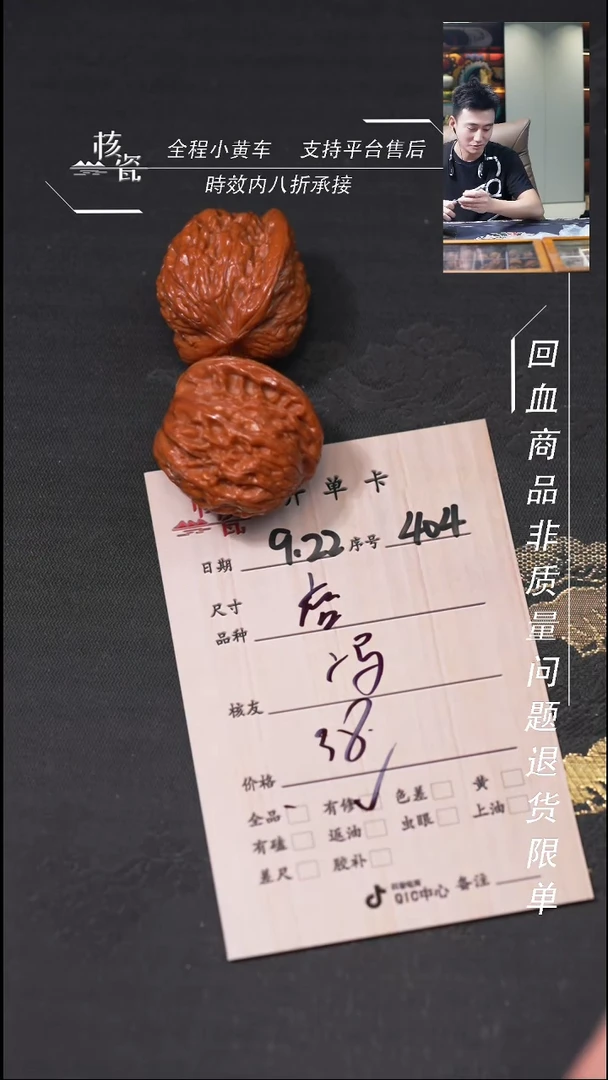 核瓷
全程小黄车 支持平台售后
時效内八折承接
回血商品非质量问题退货限单
核瓷 开单卡
日期 9.22 序号 404
尺寸
品种
冯
核友
38
价格
全品 有修 ✓ 色差 黄
有磕 返油 虫眼 上油
差尺 胶补
QIC中心 备注